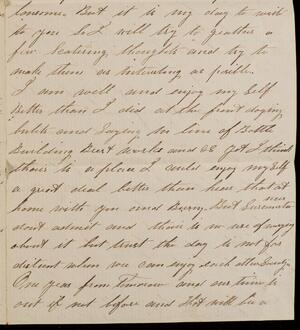 lonesome. But it is my day to write
to you So I will try to gather a
few scatering thoughts and try to
make them as intersting as posible.
I am well and enjoy my self
Better than I did at the first
and Laying in line of Battle
Building Brest works and &c yet I think
thair is a place I could enjoy mySelf
a great deal better than hear that at
home with you and Benny. But Sircumstances
dont admit and thair is no use of
about it but trust the day is not far
distent when we can enjoy each other Society
One year from Tomorow and our time is
out if not before and that will be a